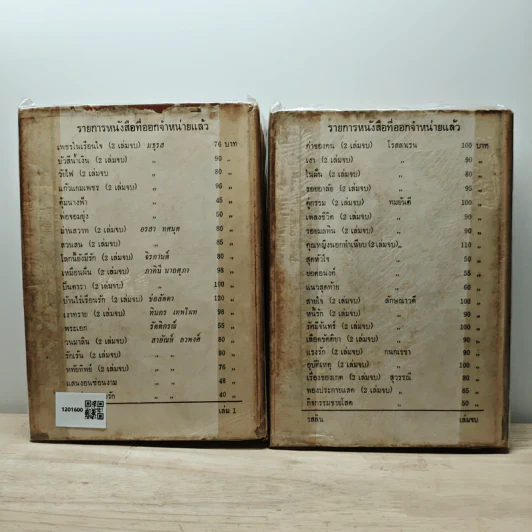 รายการหนังสือที่ออกจำหน่ายแล้ว
เพชรในเรือนใจ (2 เล่มจบ) มธุรส 76 บาท
บัวสีน้ำเงิน (2 เล่มจบ) „ 90 „
รักไฟ (2 เล่มจบ „ 85 „
แก้วแกมเพชร (2 เล่มจบ) „ 96 „
„ 45 „
„ 50 „
ม่านสวาท (2 เล่มจบ) 80 „
(2 เล่มจบ) „ 85 „
โลกนี้ยังมีรัก (2 เล่มจบ) จิรกานต์ 80 „
เหมือนฝัน (2 เล่มจบ) 98 „
(2 เล่มจบ) „ 100 „
บ้านไร่เรือนรัก (2 เล่มจบ) ช่อลัดดา 120 „
เงาทราย (2 เล่มจบ) ทิมกร 98 „
พระเอก รัตติกรณ์ 55 „
วนมาลิน (2 เล่มจบ) 80 „
(2 เล่มจบ) „ „ 90 „
(2 เล่มจบ) „ „ 76 „
แสนงอนซ่อนงาม „ „ 48 „
รัก „ „ 40 „
เล่ม 1
1201600
รายการหนังสือที่ออกจำหน่ายแล้ว
ค่าของคน (2 เล่มจบ) โรสลาเรน 100 บาท
เงา (2 เล่มจบ) „ 90 „
ในฝัน (2 เล่มจบ) „ 80 „
รอยอาลัย (2 เล่มจบ) „ 95 „
คู่กรรม (2 เล่มจบ) ทมยันตี 100 „
เพลงชีวิต (2 เล่มจบ) „ 90 „
รอยมลทิน (2 เล่มจบ) „ 90 „
คุณหญิงนอกทำเนียบ (2 เล่มจบ)„ 110 „
สุดหัวใจ „ 50 „
ยอดอนงค์ „ 55 „
แนวสุดท้าย „ 60 „
สายใจ (2 เล่มจบ) ลักษณวดี 100 „
หนี้รัก (2 เล่มจบ) „ 90 „
รัศมีจันทร์ (2 เล่มจบ) „ 100 „
เลือดขัตติยา (2 เล่มจบ) „ 90 „
แรงรัก (2 เล่มจบ) กนกเรขา 90 „
อุบัติเหตุ (2 เล่มจบ) „ 80 „
เรื่องของเกด (2 เล่มจบ) สุวรรณี 80 „
(2 เล่มจบ) „ 80 „
กิจกรรมชายโสด „ 50 „
รสลิน เล่มจบ